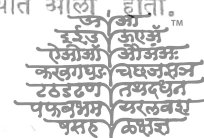 आला होता.
अ आ ™
इ ई उ ऊ ए ॲ
ऐ ओ औ ऑ अं अः
क ख ग घ ङ च छ ज झ ञ
ट ठ ड ढ ण त थ द ध न
प फ ब भ म य र ल व श
ष स ह ळ क्ष ज्ञ